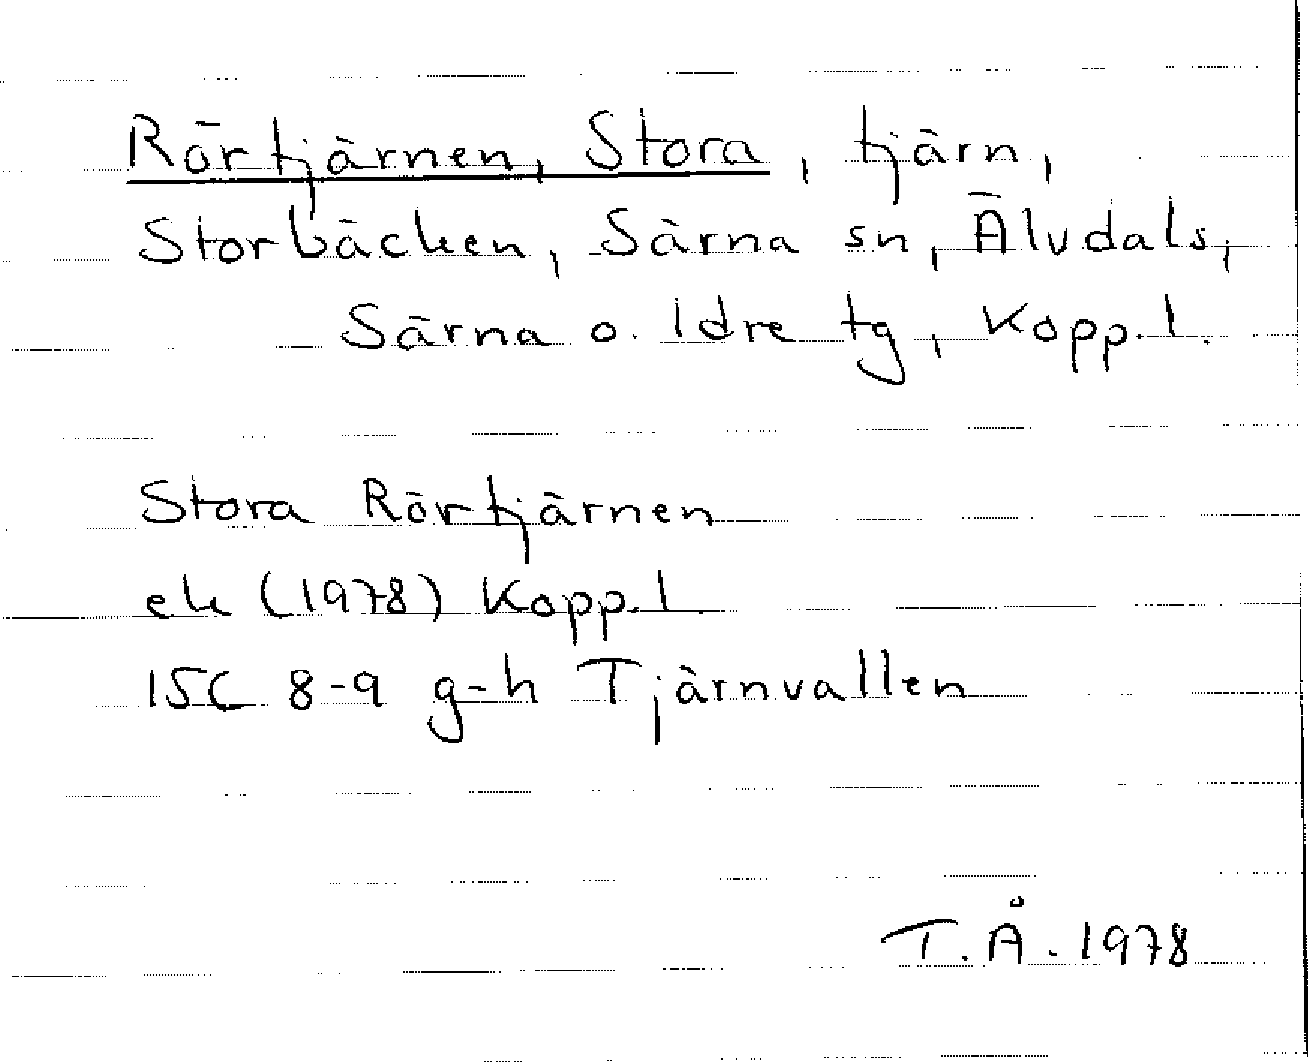 Rörtjärnen, Stora, tjärn,
Storbäcken, Särna sn, Älvdals,
Särna o. Idre tg, Kopp. l.
Stora Rörtjärnen
ek (1978) Kopp. l.
15C 8-9 g-h Tjärnvallen
T.Å. 1978